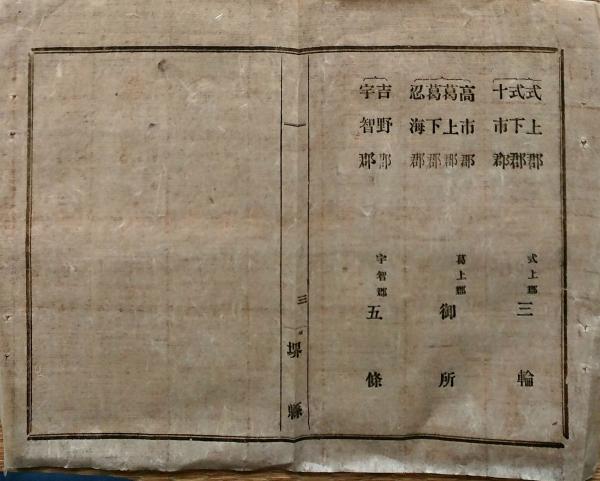 式上郡
式下郡
十市郡
式上郡三輪
高市郡
葛上郡
葛下郡
忍海郡
葛上郡御所
吉野郡
宇智郡
宇智郡五條
三
堺縣